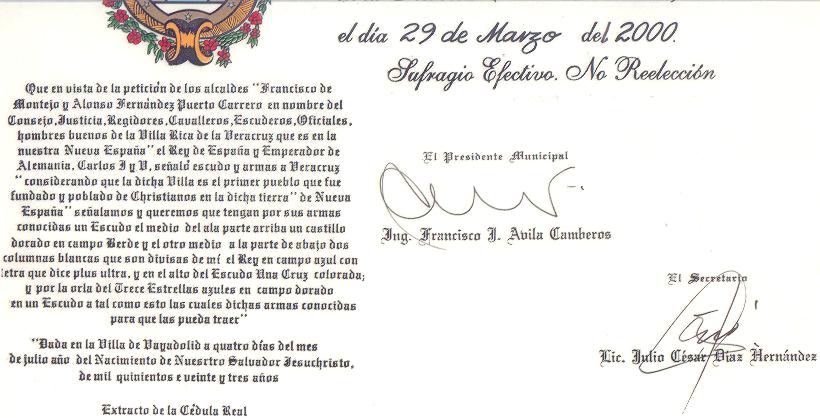 el día 29 de Marzo del 2000.
Sufragio Efectivo. No Reelección
Que en vista de la petición de los alcaldes "Francisco de
Montejo y Alonso Fernández Puerto Carrero en nombre del
Consejo,Justicia,Regidores,Cavalleros,Escuderos,Oficiales,
hombres buenos de la Villa Rica de la Veracruz que es en la
nuestra Nueva España" el Rey de España y Emperador de
Alemania, Carlos I y V, señaló escudo y armas a Veracruz
"considerando que la dicha Villa es el primer pueblo que fue
fundado y poblado de Christianos en la dicha tierra" de Nueva
España" señalamos y queremos que tengan por sus armas
conocidas un Escudo el medio del ala parte arriba un castillo
dorado en campo Berde y el otro medio a la parte de abajo dos
columnas blancas que son divisas de mí el Rey en campo azul con
letra que dice plus ultra, y en el alto del Escudo Una Cruz colorada;
y por la orla del Trece Estrellas azules en campo dorado
en un Escudo a tal como esto las cuales dichas armas conocidas
para que las pueda traer"
"Dada en la Villa de Vayadolid a quatro días del mes
de julio año del Nacimiento de Nuesrtro Salvador Jesuchristo,
de mil quinientos e veinte y tres años
Extracto de la Cédula Real
El Presidente Municipal
Ing. Francisco J. Avila Camberos
El Secretario
Lic. Julio César Díaz Hernández